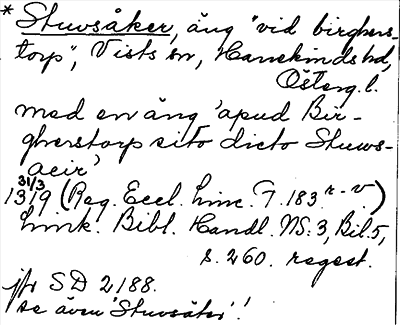 * Stuvsåker, äng "vid birghers-
torp", Vists sn, Hanekinds hd,
Österg. l.
med en äng 'apud Bir-
gherstorp sito dicto Stuws-
acir'
31/3
1319 (Reg. Eccl. Linc. F. 183 r.-v.)
Link. Bibl. Handl. NS. 3, Bil. 5,
s. 260. regest.
jfr SD 2188.
se även 'Stuvsåker'!